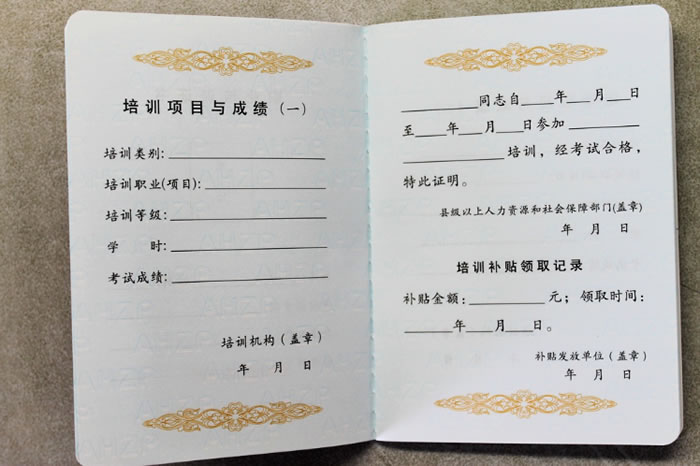 培训项目与成绩（一）
培训类别:
培训职业(项目):
培训等级:
学 时:
考试成绩:
培训机构（盖章）
年 月 日
____同志自____年___月___日
至____年___月___日参加____
____培训，经考试合格，
特此证明。
县级以上人力资源和社会保障部门(盖章)
年 月 日
培训补贴领取记录
补贴金额:____元；领取时间:
____年___月___日。
补贴发放单位（盖章）
年 月 日